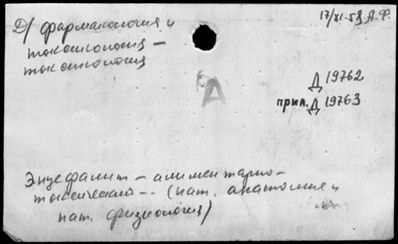 Д/ фармакология и
токсикология —
токсикология
17/XI-58 А.Ф.
А
Д 19762
прил. Д 19763
Энцефалит — алиментарно-
токсический -- (пат. анатомия и
пат. физиология)